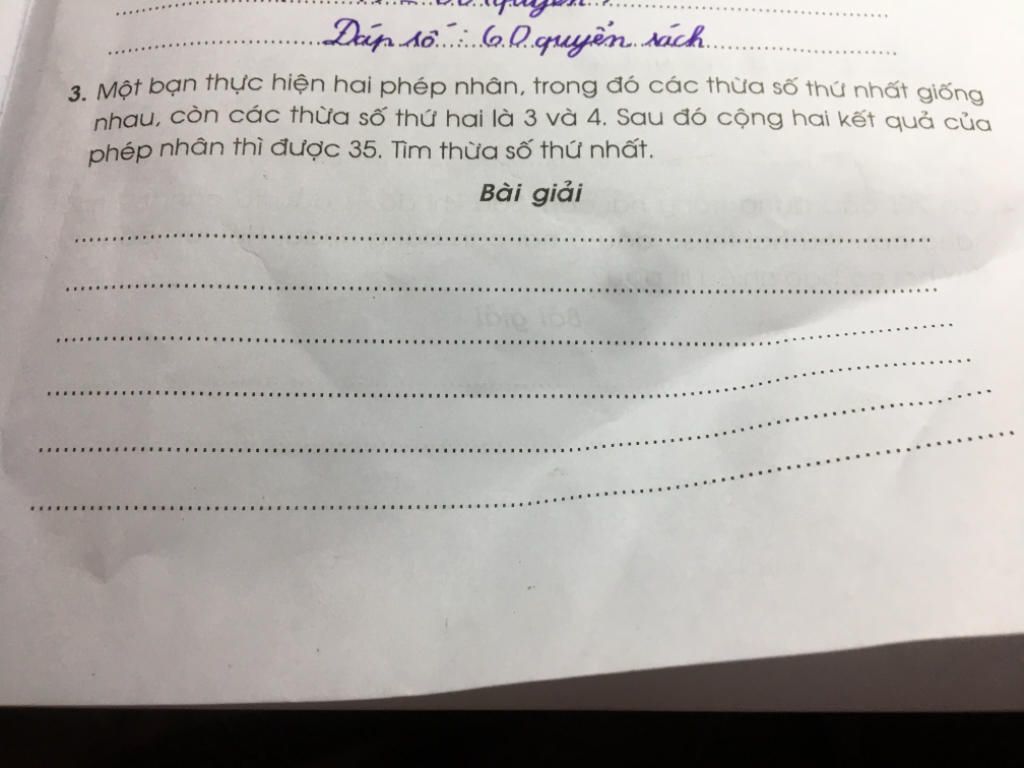 quyển
Đáp số : 60 quyển sách
3. Một bạn thực hiện hai phép nhân, trong đó các thừa số thứ nhất giống
nhau, còn các thừa số thứ hai là 3 và 4. Sau đó cộng hai kết quả của
phép nhân thì được 35. Tìm thừa số thứ nhất.
Bài giải
Bài giải